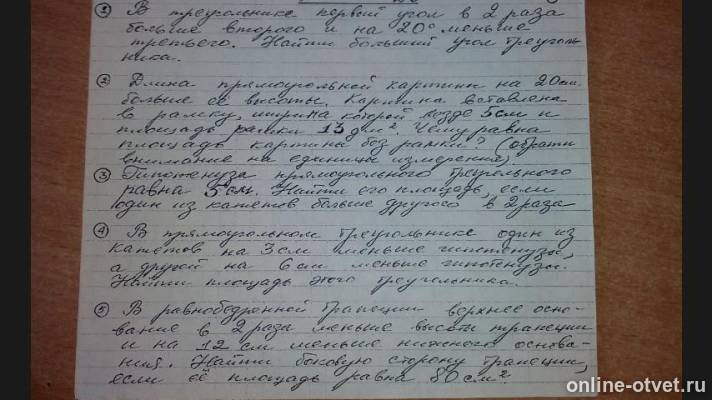 ① В треугольнике первый угол в 2 раза
больше второго и на 20° меньше
третьего. Найти больший угол треуголь
ника.
② Длина прямоугольной картины на 20см
больше её высоты. Картина вставлена
в рамку, ширина которой везде 5см и
площадь рамки 13 дм². Чему равна
площадь картины без рамки? (обрати
внимание на единицы измерения)
③ Гипотенуза прямоугольного треугольного
равна 5см. Найти его площадь, если
один из катетов больше другого в 2 раза
④ В прямоугольном треугольнике один из
катетов на 3см меньше гипотенузы,
а другой на 6см меньше гипотенузы.
Найти площадь этого треугольника.
⑤ В равнобедренной трапеции верхнее осно-
вание в 2 раза меньше высоты трапеции
и на 12 см меньше нижнего основа-
ния. Найти боковую сторону трапеции,
если её площадь равна 80 см².
online-otvet.ru